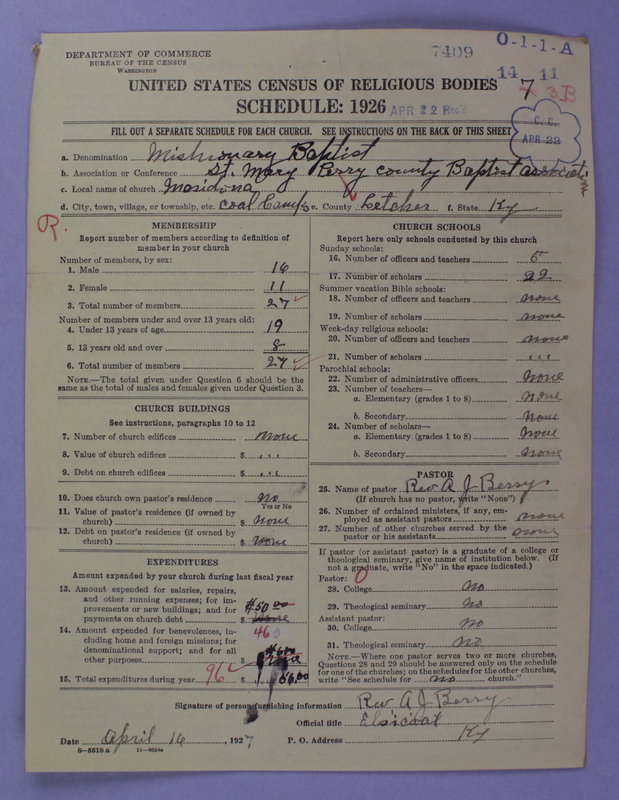 DEPARTMENT OF COMMERCE
BUREAU OF THE CENSUS
WASHINGTON
7409
O-1-1-A
14 11
7
3B
UNITED STATES CENSUS OF RELIGIOUS BODIES
SCHEDULE: 1926
APR 22 Rec'd
C. C.
APR 23
FILL OUT A SEPARATE SCHEDULE FOR EACH CHURCH. SEE INSTRUCTIONS ON THE BACK OF THIS SHEET
a. Denomination Missionary Baptist
b. Association or Conference St. Mary Perry county Baptist association
c. Local name of church Masidona
d. City, town, village, or township, etc. Coal Camp e. County Letcher f. State Ky
R.
MEMBERSHIP
Report number of members according to definition of member in your church
Number of members, by sex:
1. Male 16
2. Female 11
3. Total number of members 27
Number of members under and over 13 years old:
4. Under 13 years of age 19
5. 13 years old and over 8
6. Total number of members 27
NOTE.—The total given under Question 6 should be the same as the total of males and females given under Question 3.
CHURCH BUILDINGS
See instructions, paragraphs 10 to 12
7. Number of church edifices none
8. Value of church edifices $ ...
9. Debt on church edifices $ ...
10. Does church own pastor's residence No
Yes or No
11. Value of pastor's residence (if owned by church) $ None
12. Debt on pastor's residence (if owned by church) $ None
EXPENDITURES
Amount expended by your church during last fiscal year
13. Amount expended for salaries, repairs, and other running expenses; for improvements or new buildings; and for payments on church debt $50 00
$ None
14. Amount expended for benevolences, including home and foreign missions; for denominational support; and for all other purposes 46
$
15. Total expenditures during year 96 $
CHURCH SCHOOLS
Report here only schools conducted by this church
Sunday schools:
16. Number of officers and teachers 5
17. Number of scholars 22
Summer vacation Bible schools:
18. Number of officers and teachers none
19. Number of scholars none
Week-day religious schools:
20. Number of officers and teachers none
21. Number of scholars ...
Parochial schools:
22. Number of administrative officers None
23. Number of teachers—
a. Elementary (grades 1 to 8) None
b. Secondary None
24. Number of scholars—
a. Elementary (grades 1 to 8) None
b. Secondary None
PASTOR
25. Name of pastor Rev A J Berry
(If church has no pastor, write "None")
26. Number of ordained ministers, if any, employed as assistant pastors none
27. Number of other churches served by the pastor or his assistants none
If pastor (or assistant pastor) is a graduate of a college or theological seminary, give name of institution below. (If not a graduate, write "No" in the space indicated.)
Pastor: 0
28. College No
29. Theological seminary No
Assistant pastor:
30. College No
31. Theological seminary No
NOTE.—Where one pastor serves two or more churches, Questions 28 and 29 should be answered only on the schedule for one of the churches; on the schedules for the other churches, write "See schedule for no church."
Signature of person furnishing information Rev A J Berry
Official title Elsicoal
Date April 16, 1927 P. O. Address Ky
8-5518 a 11-9034a